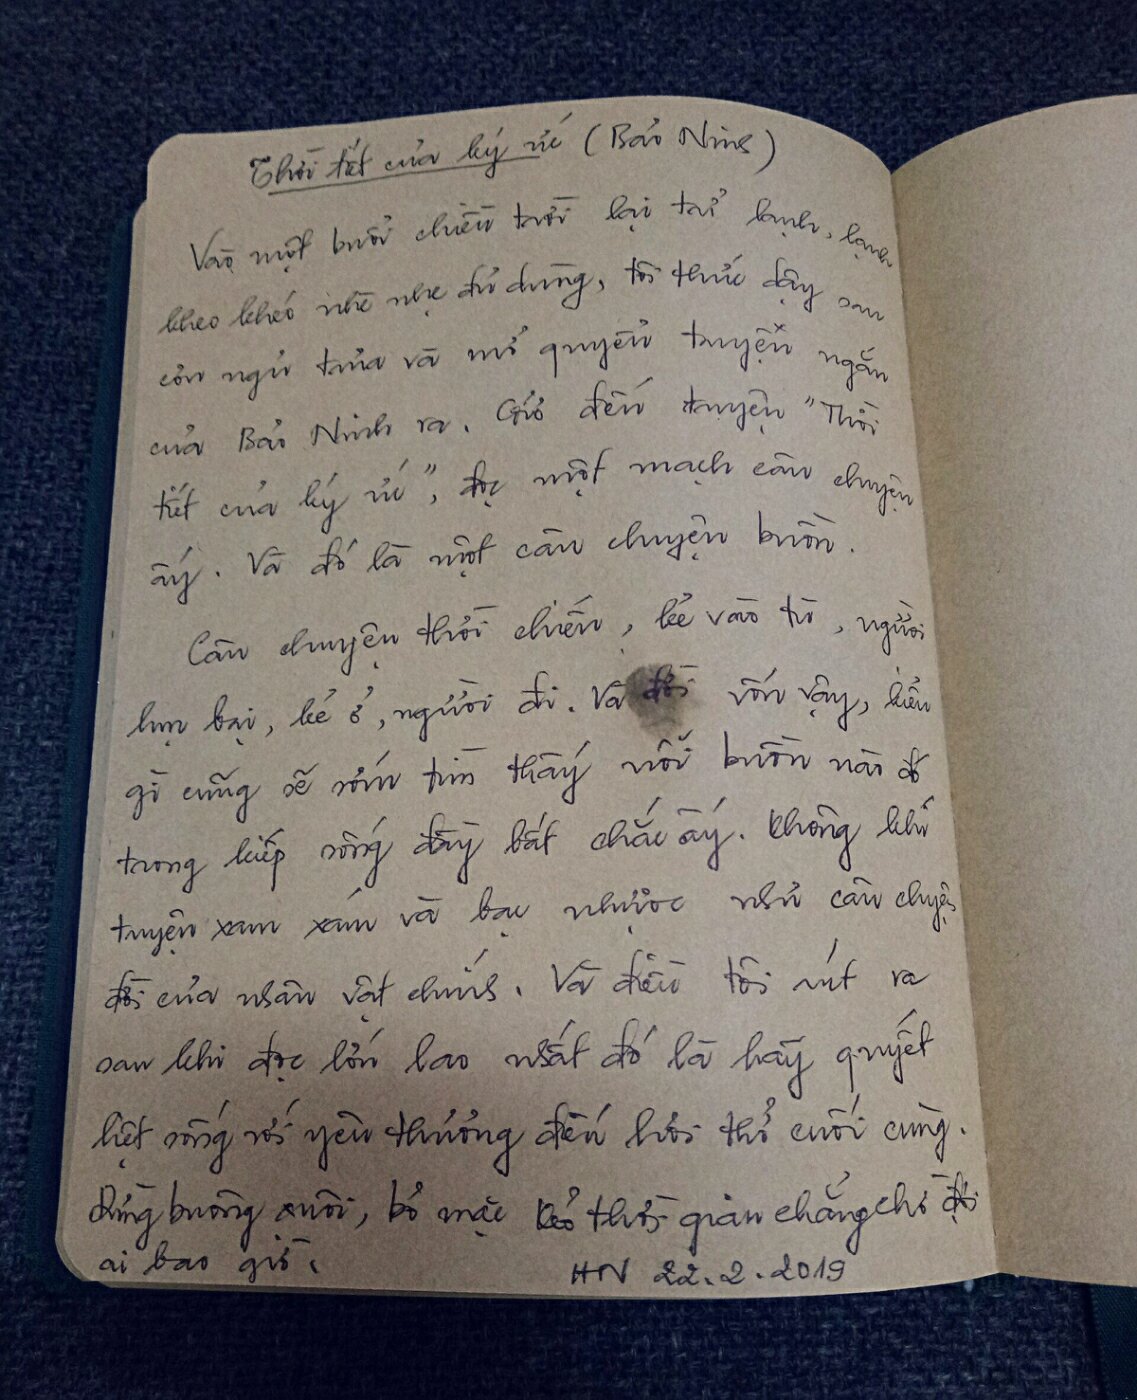 Thời tiết của ký ức (Bảo Ninh)
Vào một buổi chiều trời lại trở lạnh, lạnh
kheo khéo nhè nhẹ đủ dùng, tôi thức dậy sau
cơn ngủ trưa và mở quyển truyện ngắn
của Bảo Ninh ra. Giở đến truyện "Thời
tiết của ký ức", đọc một mạch câu chuyện
ấy. Và đó là một câu chuyện buồn.
Câu chuyện thời chiến, kẻ vào tù, người
lụn bại, kẻ ở, người đi. Và đời vốn vậy, kiểu
gì cũng sẽ sớm tìm thấy nỗi buồn nào đó
trong kiếp sống đầy bất chắc ấy. Không khí
truyện xam xám và bạc nhược như câu chuyện
đời của nhân vật chính. Và điều tôi rút ra
sau khi đọc lớn lao nhất đó là hãy quyết
liệt sống với yêu thương đến hơi thở cuối cùng.
Đừng buông xuôi, bỏ mặc kẻo thời gian chẳng chờ đợi
ai bao giờ.
HN 22.2.2019